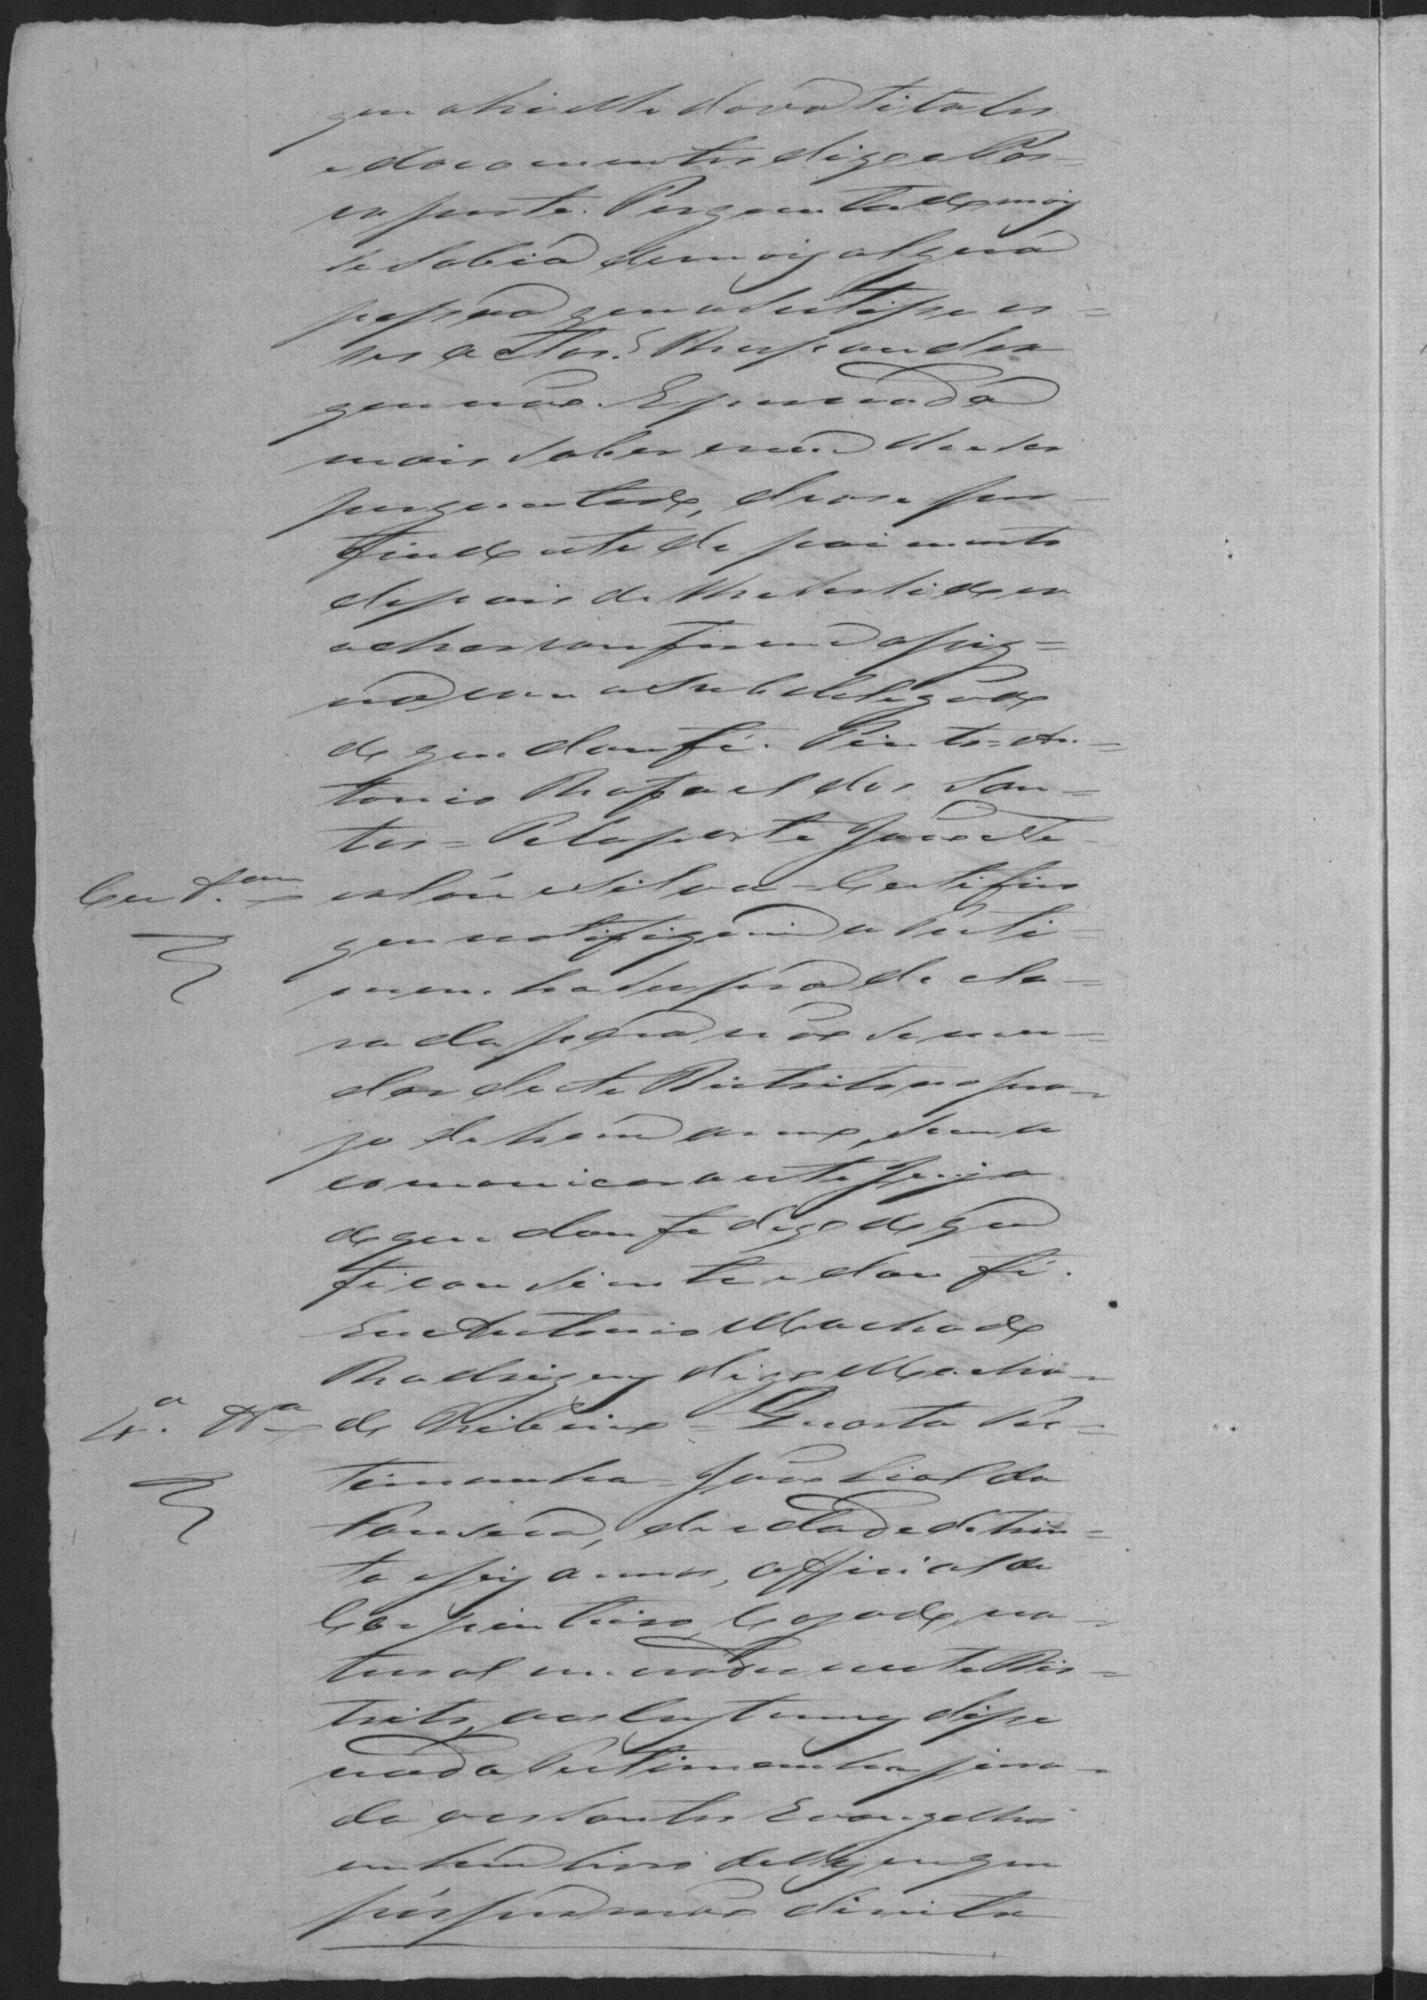 que ahi elle dava titulos
e documentos digo e Pas-
saporte. Perguntado mais
se sabia de mais alguma
pessoa que assistisse es-
ses actos? Respondeo
que não. E por nada
mais saber nem dever ser
perguntado, deo-se por
findo este depoimento
depois de lhe ser lido e o
achar conforme assig-
na com o Subdelegado
do que dou fé. Pinto = An-
tonio Rafael dos San-
tos = Pela parte João Es-
Certam
e Silva = Certifico
que notifiquei a testi-
munha supra decla-
rada para não se mu-
dar deste Districto no pra-
zo de hum anno, sem a
comonicar a este Juizo
do que dou fé digo do que
ficou siente e dou fé.
Eu Antonio Machado
Rodrigues digo Macha-
4.ª Ta
do Ribeiro = Quarta Tes-
timunha = João Leal da
Fonseca, de idade de trin-
ta e seis annos, official de
Carpinteiro, Casado, na-
tural e morador neste Dis-
tricto, aos custumes disse
nada Testimunha jura-
da aos Santos Evangelhos
em hum livro delles em que
pôs sua mão direita